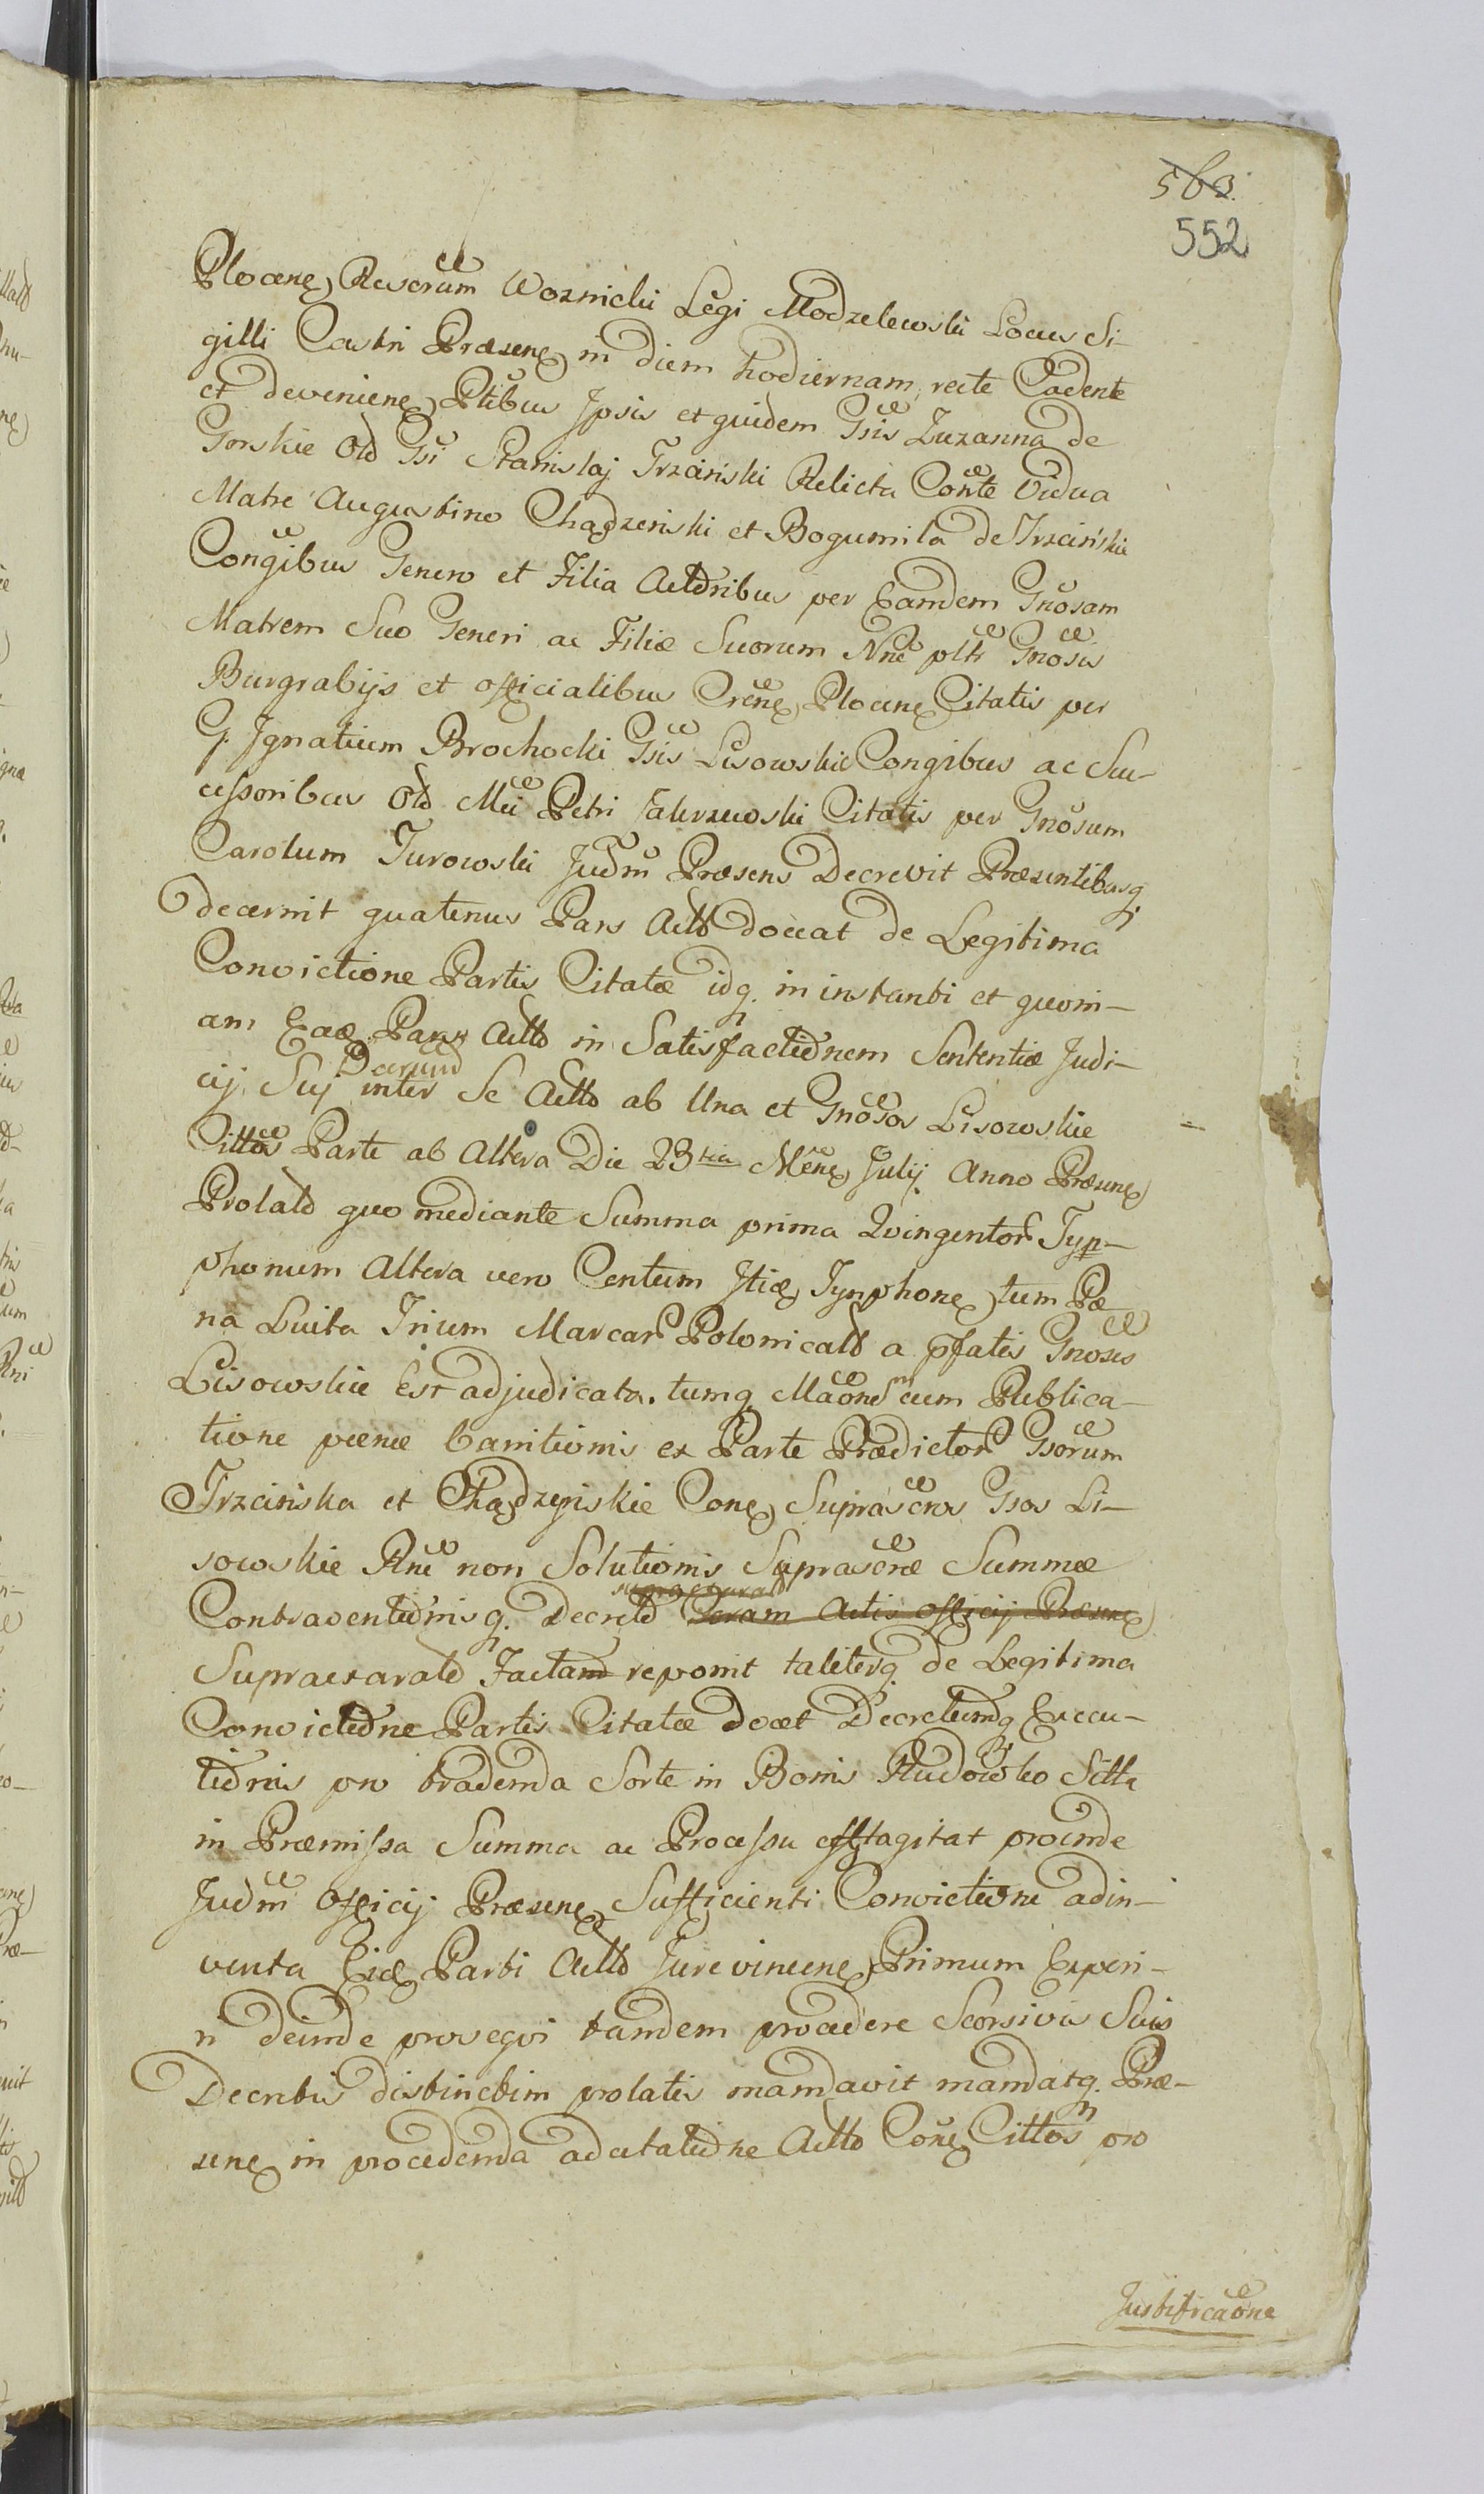 563.
552
Plocenę Reverum Woznicki Legi Modzelewski Locus Si-
gilli Castri Præsenę in diem hodiernam recte Cadente
et devenienę Ptibus Ipsis et quidem Gsis Zuzanna de
Gorskie Old Gsi Stanislaj Trzcinski Relicta Conte Vidua
Matre Augustino Chądzenski et Bogumila de Trzcińskie
Congibus Genero et Filia Actoribus per Eandem Gnosam
Matrem Suo Generi ac Filiæ Suorum Nne pltr Gnosis
Burgrabijs et officialibus Crenę Plocenę Citatis per
G. Ignatium Brochocki Gsis Lisowskie Congibus ac Suc-
cessoribus Old Mci Petri Zakrzewski Citatis per Gnosum
Carolum Turowski Judm Præsens Decrevit Præsentibusq.
decernit quatenus Pars Actto doceat de Legitima
Convictione Partis Citatæ idq. in instanti et quoni-
am Eaę Pars Actto in Satisfactionem Sententiæ Judi-
cij Suj inter Se Actto ab Una et Gnosos Lisowskie
Cittos Parte ab Altera Die 23tia Menę Julij Anno Præsenę
Prolato quo mediante Summa prima Qvingentor Tyn-
phonum Altera vero Centum Itię Tynphonę tum Pæ
na Luita Trium Marcar Polonicalo a pfatis Gnosis
Lisowskie Est adjudicata. tumq Maone cum Publica-
tione pænæ banitionis ex Parte Prædictor Gsorum
Trzcińska et Chądzyńskie Conę Suprascros Gsos Li-
sowskie Rne non Solutionis Suprascræ Summæ
Contraventionisq. Decreto Coram Actis officij Præsenę
Supraexarato Factam reponit taliterq de Legitima
Convictione Partis Citatæ docet Decretumq Execu-
tionis pro tradenda Sorte in Bonis Rudowko Sitta
in Præmissa Summa ac Processu efflagitat proinde
Judm Officij Præsenę Sufficienti Convictione adin-
venta Eię Parti Actto Jure vincenę Primum Experi-
ri deinde proseqvi tandem procedere Scorsivis Suis
Decretis distinctim prolatis mandavit mandatq. Præ-
senę in procedenda adcitatione Actto Conę Cittos pro
Justificaone